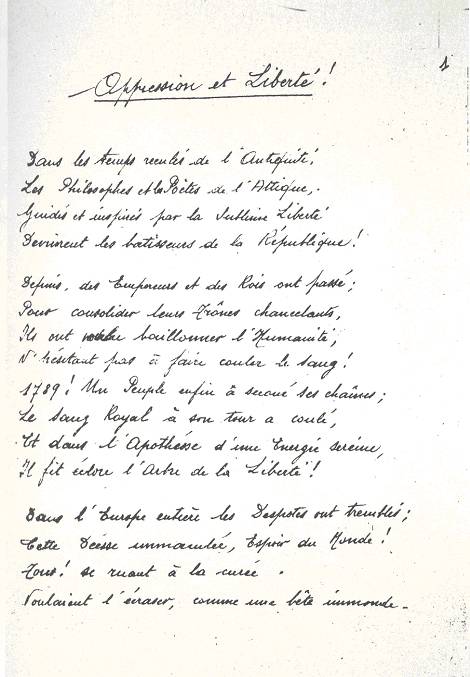 1
Oppression et Liberté !
Dans les temps reculés de l'Antiquité,
Les Philosophes et les Poètes de l'Attique,
Guidés et inspirés par la Sublime Liberté
Devinrent les batisseurs de la République !
Depuis, des Empereurs et des Rois ont passé ;
Pour consolider leurs Trônes chancelants,
Ils ont voulu baillonner l'Humanité,
N'hésitant pas à faire couler le sang !
1789 ! Un Peuple enfin à secoué ses chaînes ;
Le sang Royal à son tour a coulé,
Et dans l'Apothéose d'une Energie sereine,
Il fit éclore l'Arbre de la Liberté !
Dans l'Europe entière les Despotes ont tremblés ;
Cette Déesse immaculée, Espoir du Monde !
Tous ! se ruant à la curée.
Voulaient l'écraser, comme une bête immonde.